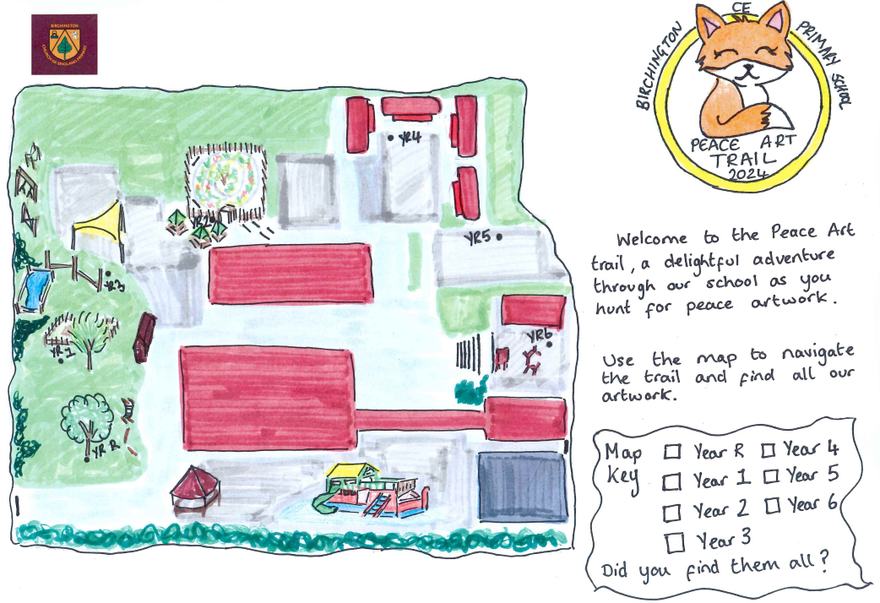 BIRCHINGTON
CHURCH OF ENGLAND PRIMARY
BIRCHINGTON CE PRIMARY SCHOOL
PEACE ART
TRAIL
2024
YR4
YR2
YR5
YR3
YR6
YR1
YR R
Welcome to the Peace Art
trail, a delightful adventure
through our school as you
hunt for peace artwork.
Use the map to navigate
the trail and find all our
artwork.
Map Key
Year R
Year 4
Year 1
Year 5
Year 2
Year 6
Year 3
Did you find them all?